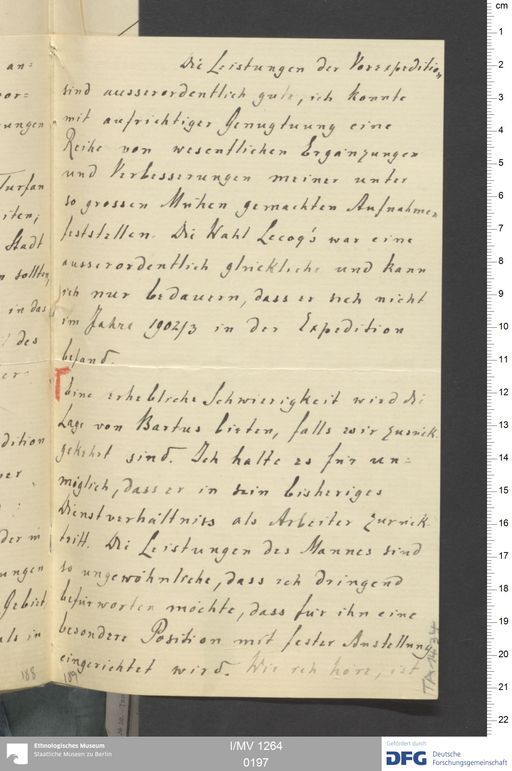 an=
vor=
rungen
Turfan
iten;
Stadt
n sollten,
in das
des
er
dition
der in
ungen
Gebiet
als in
188
Die Leistungen der Vorexpedition
sind ausserordentlich gute, ich konnte
mit aufrichtiger Genugtuung eine
Reihe von wesentlichen Ergänzungen
und Verbesserungen meiner unter
so grossen Mühen gemachten Aufnahmen
feststellen. Die Wahl Lecoq's war eine
ausserordentlich glückliche und kann
ich nur bedauern, dass er sich nicht
im Jahre 1902/3 in der Expedition
befand.
Eine erhebliche Schwierigkeit wird die
Lage von Bartus bieten, falls wir zurück-
gekehrt sind. Ich halte es für un=
möglich, dass er in sein bisheriges
Dienstverhältniss als Arbeiter zurück-
tritt. Die Leistungen des Mannes sind
so ungewöhnliche, dass ich dringend
befürworten möchte, dass für ihn eine
besondere Position mit fester Anstellung
eingerichtet wird. Wie ich höre, ist
189
TA 1434
cm
1
2
3
4
5
6
7
8
9
10
11
12
13
14
15
16
17
18
19
20
21
22
Ethnologisches Museum
Staatliche Museen zu Berlin
I/MV 1264
0197
Gefördert durch
DFG Deutsche
Forschungsgemeinschaft